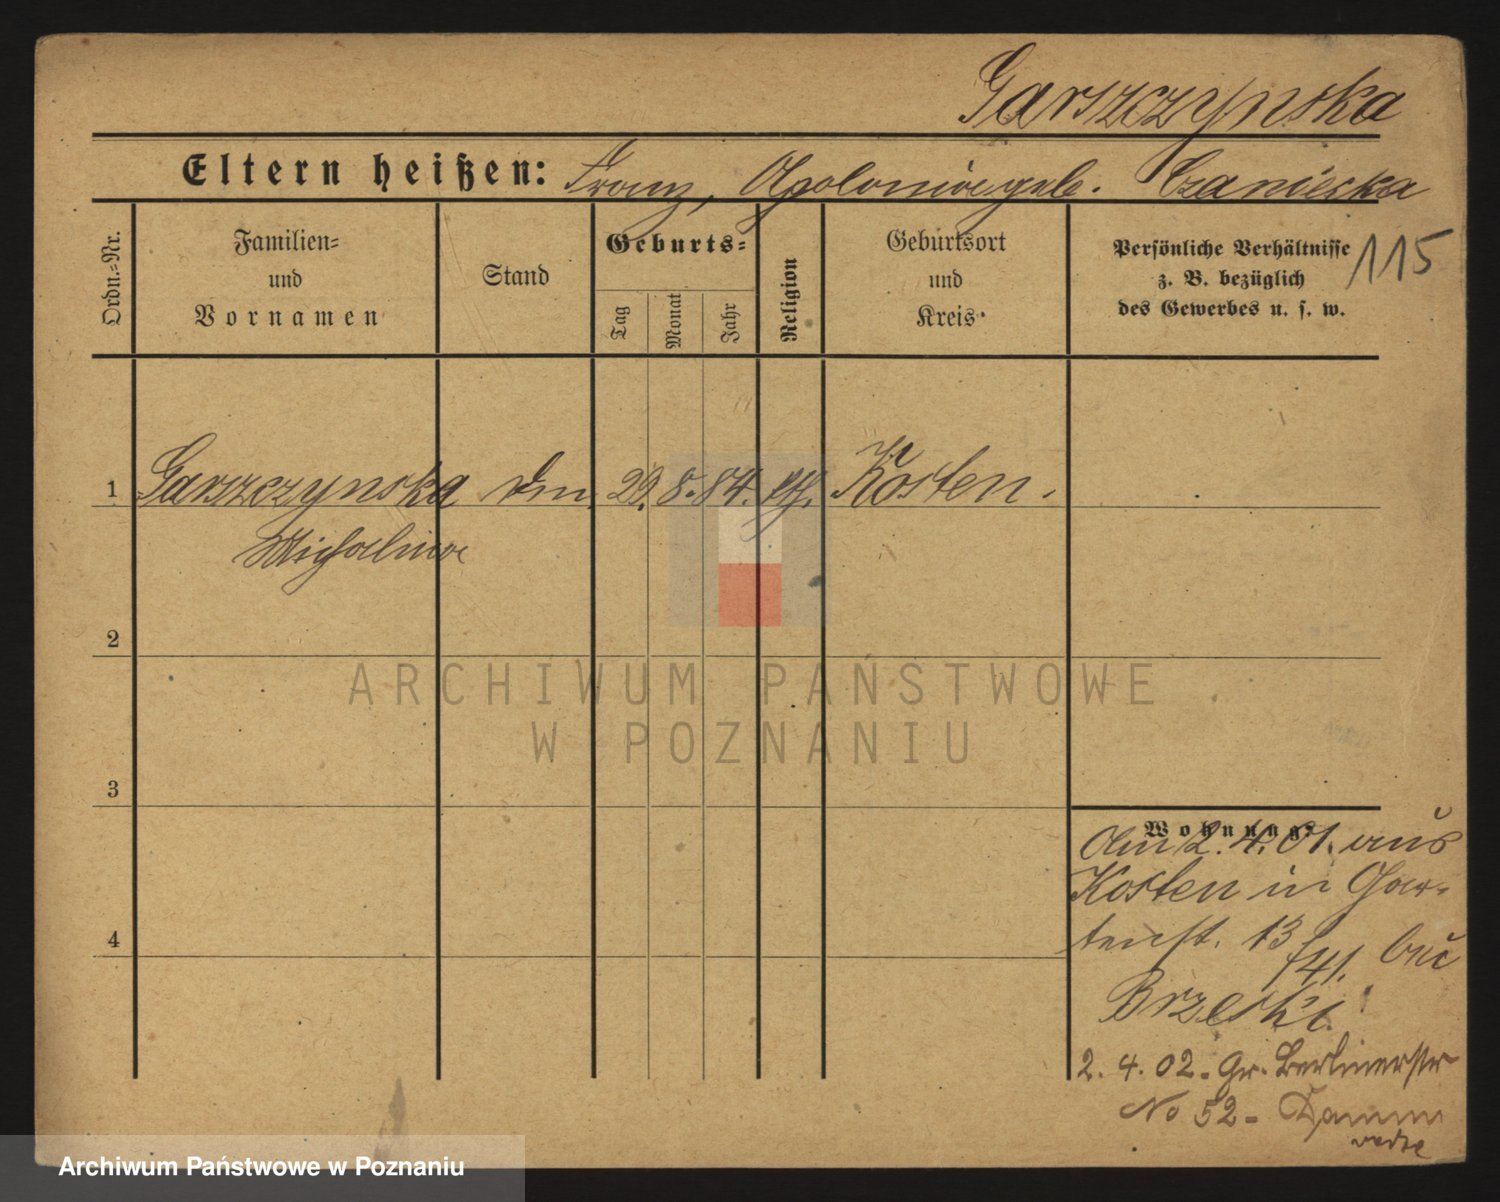 Garszczynska
Eltern heißen: Franz, Apolonia geb. Czaniecka
Ordn.=Nr.
Familien=
und
Vornamen
Stand
Geburts=
Tag
Monat
Jahr
Religion
Geburtsort
und
Kreis
Persönliche Verhältnisse
z. B. bezüglich
des Gewerbes u. s. w.
115
1 Garszczynska 29. 8. 84. kth. Kosten.
Michalina
2
ARCHIWUM PAŃSTWOWE
W POZNANIU
3
Wohnung:
Am 2.4.01. aus
4
Kosten in Gar-
tenst. 13
/41. bei
Brzeski
2. 4. 02. Gr. Berlinerstr
No 52 - Damm
Archiwum Państwowe w Poznaniu